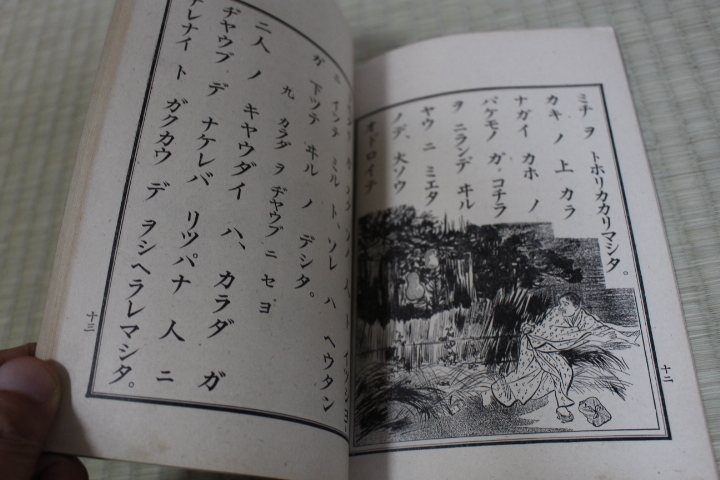 ミチ ヲ トホリカカリマシタ。
カキ ノ 上 カラ
ナガイ カホ ノ
バケモノ ガ、コチラ
ヲ ニランデ ヰル
ヤウ ニ ミエタ
ノデ、大ソウ
オドロイテ
十二
ニ インテ ミル ト、ソレ ハ ヘウタン
ガ 下ツテ ヰル ノ デシタ。
九 カラダ ヲ ヂヤウブ ニ セヨ
二人 ノ キヤウダイ ハ、カラダ ガ
ヂヤウブ デ ナケレバ リツパナ 人 ニ
ナレナイ ト ガクカウ デ ヲシヘラレマシタ。
十三